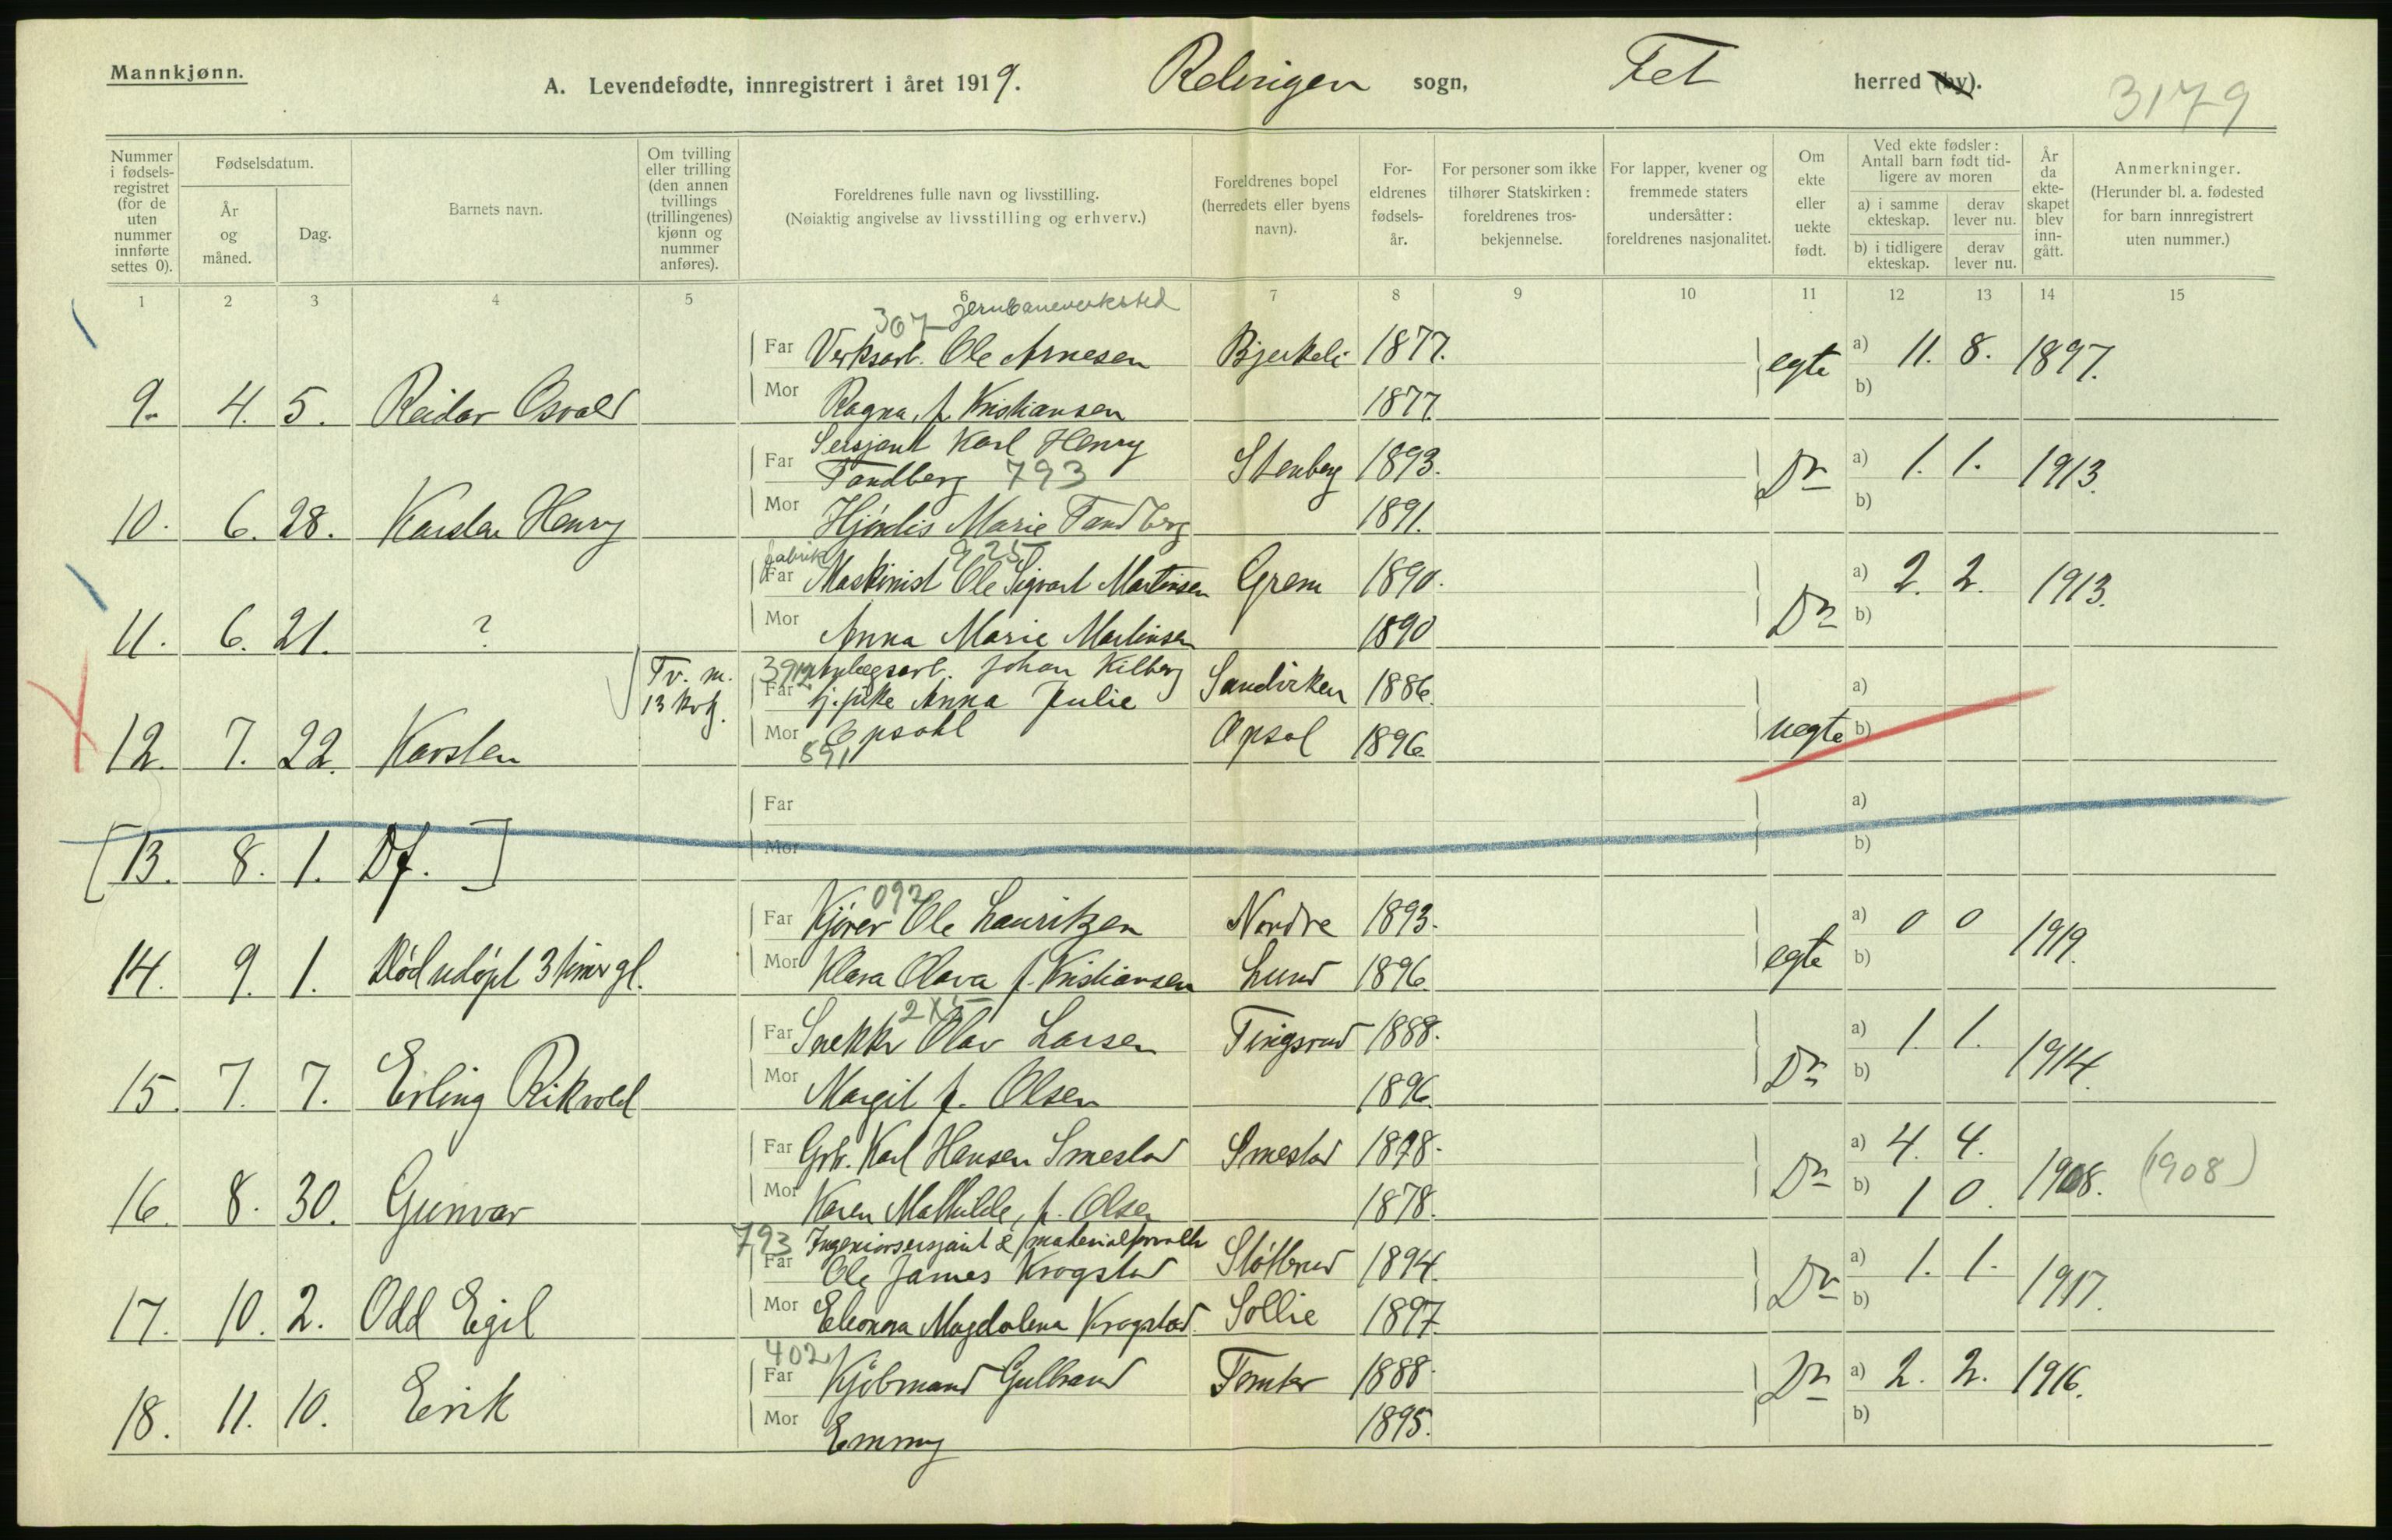 Mannkjønn.
A. Levendefødte, innregistrert i året 1919. Relingen sogn, Fet herred (by).
3179
Nummer i fødsels-registret (for de uten nummer innførte settes 0).
Fødselsdatum.
År og måned.
Dag.
Barnets navn.
Om tvilling eller trilling (den annen tvillings (trillingenes) kjønn og nummer anføres).
Foreldrenes fulle navn og livsstilling.
(Nøiaktig angivelse av livsstilling og erhverv.)
Foreldrenes bopel (herredets eller byens navn).
For-eldrenes fødsels-år.
For personer som ikke tilhører Statskirken: foreldrenes tros-bekjennelse.
For lapper, kvener og fremmede staters undersåtter: foreldrenes nasjonalitet.
Om ekte eller uekte født.
Ved ekte fødsler: Antall barn født tid-ligere av moren
a) i samme ekteskap.
derav lever nu.
b) i tidligere ekteskap.
derav lever nu.
År da ekte-skapet blev inn-gått.
Anmerkninger.
(Herunder bl. a. fødested for barn innregistrert uten nummer.)
1 2 3 4 5 6 7 8 9 10 11 12 13 14 15
307 jernbaneverksted
Far Verksarb. Ole Arnesen Bjerkeli 1877. egte a) 11. 8. 1897.
9. 4. 5. Reidar Osvald Mor Ragna, f. Kristiansen 1877. b)
Far Sersjant Karl Henry
Tandberg 793 Stenberg 1893. Do a) 1. 1. 1913.
10. 6. 28. Karsten Henry Mor Hjördis Marie Tandberg 1891. b)
fabrik 925
Far Maskinist Ole Sigvart Martinsen Grem 1890. Do a) 2. 2. 1913.
11. 6. 21. ? Mor Anna Marie Martinsen 1890 b)
Tv. m. 13 kvk.
Anlægsarb. Johan Kilberg Sandviken 1886. a)
Far tj.pike Anna Julie
12. 7. 22. Karsten Mor Opsahl Opsal 1896. uegte b)
891
Far a)
[13. 8. 1. Df. ] Mor b)
092
Far Kjörer Ole Lauritzen Nordre 1893. egte a) 0 0 1919.
14. 9. 1. Död udöpt 3 timer gl. Mor Klara Olava f. Kristiansen Lund 1896. b)
Far Snekker Olav Larsen Tingsrud 1888. Do a) 1. 1. 1914.
15. 7. 7. Erling Rikvold Mor Margit f. Olsen 1896. b)
Far Grbr. Karl Hansen Smestad Smestad 1878. Do a) 4. 4. 1908. (1908)
16. 8. 30. Gunvar Mor Karen Mathilde, f. Olsen 1878. b) 1 0.
793 Ingeniörsersjant & materialforvalter
Far Ole James Krogstad Slötterud 1894. Do a) 1. 1. 1917.
17. 10. 2. Odd Egil Mor Eleonora Magdalena Krogstad. Sollie 1897. b)
402
Far Kjöbmand Gulbrand Tomter 1888. Do a) 2. 2. 1916.
18. 11. 10. Erik Mor Emmy 1895. b)